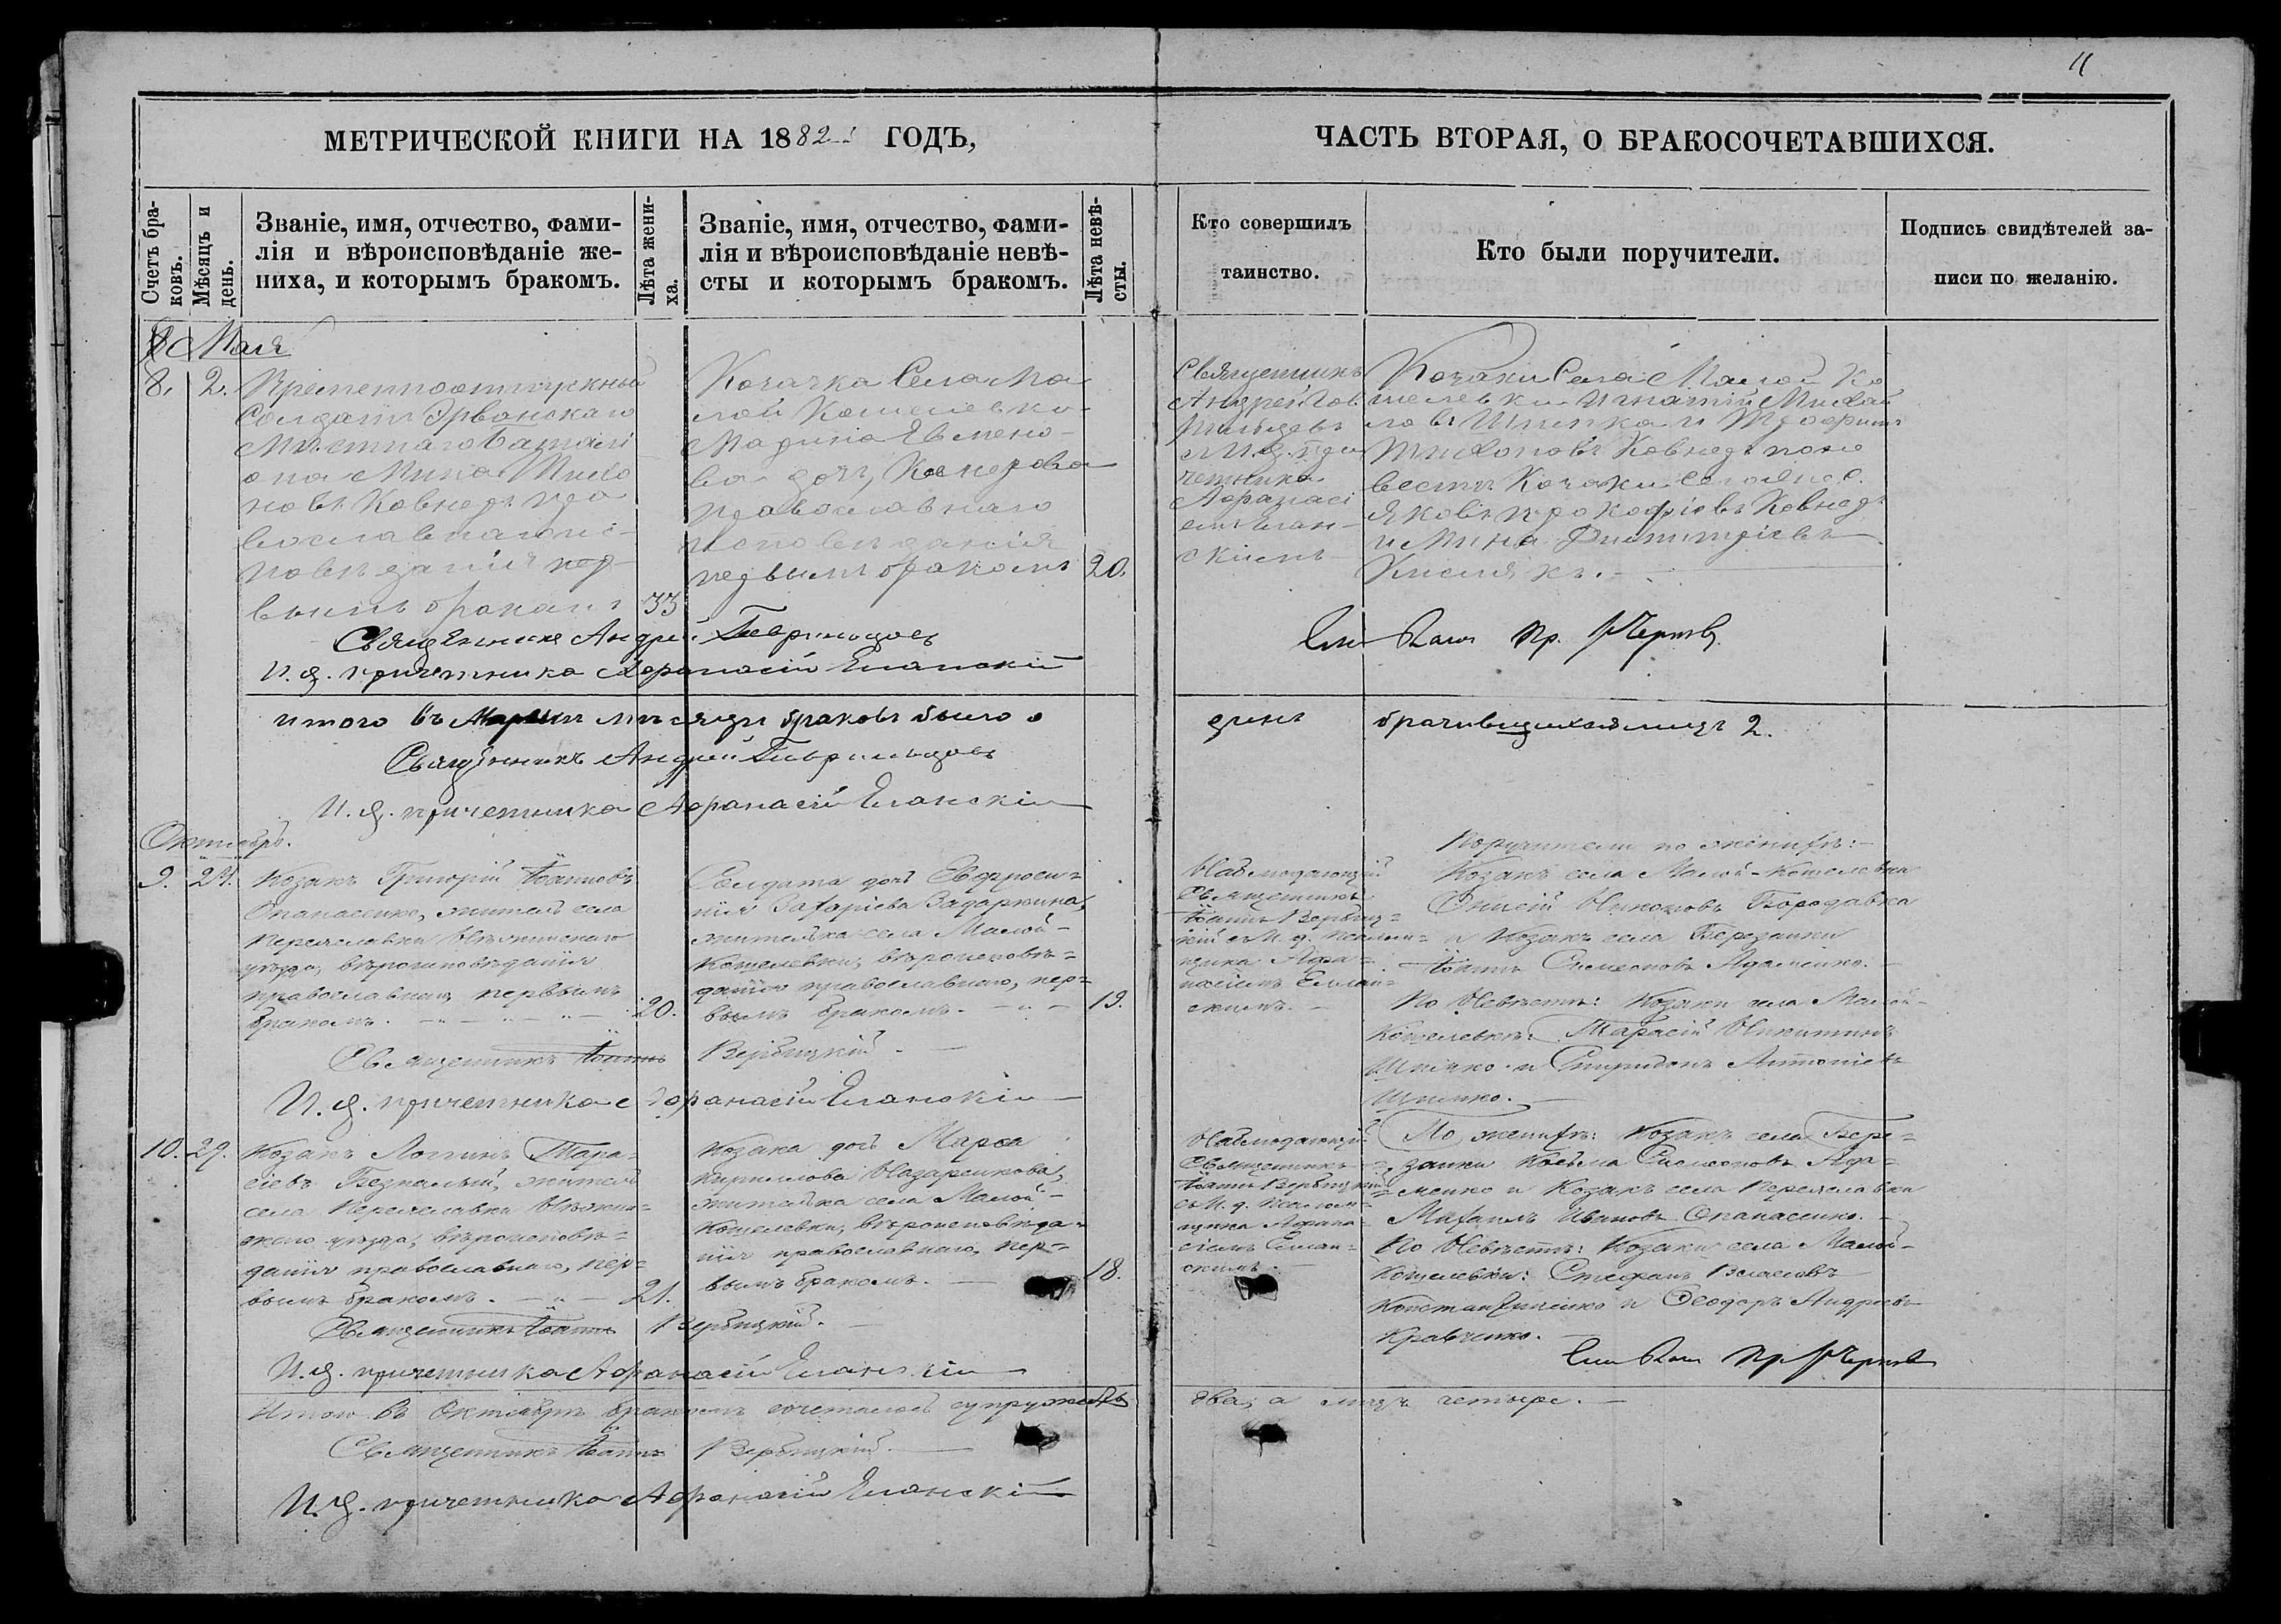 11
МЕТРИЧЕСКОЙ КНИГИ НА 1882 ГОДЪ,
ЧАСТЬ ВТОРАЯ, О БРАКОСОЧЕТАВШИХСЯ.
Счетъ бра-
ковъ.
Мѣсяцъ и
день.
Званіе, имя, отчество, фами-
лія и вѣроисповѣданіе же-
ниха, и которымъ бракомъ.
Лѣта жени-
ха.
Званіе, имя, отчество, фами-
лія и вѣроисповѣданіе невѣ-
сты и которымъ бракомъ.
Лѣта невѣ-
сты.
Кто совершилъ
таинство.
Кто были поручители.
Подпись свидѣтелей за-
писи по желанію.
Мая
8. 2.
Временноотпускный
Солдатъ Эрванскаго
Мѣстнаго Баталі
она Мина Тихо
новъ Ковнеръ пра
вославнаго ис-
повѣданія пер-
вымъ бракомъ 33
Козачка Села Ма
лой Кошелевки
Марина Евмено-
ва дочь,
православнаго
исповѣданія
первымъ бракомъ 20.
Священникъ
Андрей Гав
рильцевъ
съ И. д. при
четника
Афанасі
емъ Елан-
скимъ
Козаки Села Малой Ко
шелевки Игнатій Михай
ловъ Шпилка и Трофимъ
Тихоновъ Ковнеръ по не
вестѣ Козаки
Яковъ Прокофіевъ Ковнеръ
и Мина Димитріевъ
Кислякъ.
Священникъ Андрей Гаврильцовъ
И. д. причетника Афанасій Еланскій
итого въ мѣсяцѣ браковъ было о
динъ
брачившихся лицъ 2.
Священникъ Андрей Гаврильцовъ
И. д. причетника Афанасій Еланскій
Октябрь.
9. 24.
Козакъ Григорій Іоанновъ
Опанасенко, житель села
Переяславки Нѣжинскаго
уѣзда, вѣроисповѣданія
православнаго, первымъ
бракомъ. 20.
Солдата дочь Евфроси=
нія Захаріева Задоркина,
жителька села Малой-
Кошелевки, вѣроисповѣ=
данія православнаго, пер=
вымъ бракомъ. 19.
Наблюдающій
Священникъ
Іоаннъ Вербиц=
кій съ И. д. псалом=
щика Афа=
насіемъ Елан=
скимъ.
Поручители по женихѣ:
Козакъ села Малой-Кошелевки
Онисій Никоновъ Бородавка
и Козакъ села Березанки
Іоаннъ Симеоновъ Адаменко.
По Невѣстѣ: Козаки села Малой-
Кошелевки: Тарасій Никитинъ
Шпилко и Спиридонъ Антоніевъ
Шпилко.
Священникъ Іоаннъ Вербицкій.
И. д. причетника Афанасій Еланскій
10. 29.
Козакъ Логгинъ Тара=
сіевъ Безпалый, житель
села Переяславки Нѣжин=
скаго уѣзда, вѣроисповѣ=
данія православнаго, пер=
вымъ бракомъ. 21.
Козака дочь Марѳа
Кириллова Назаренкова,
жителька села Малой-
Кошелевки, вѣроисповѣда=
нія православнаго, пер=
вымъ бракомъ. 18.
Наблюдающій
Священникъ
Іоаннъ Вербицкій
съ И. д. псалом=
щика Афана=
сіемъ Елан=
скимъ.
По женихѣ: Козакъ села Бере=
занки Косьма Симеоновъ Ада=
менко и Козакъ села Переяславки
Михаилъ Ивановъ Опанасенко.
По Невѣстѣ: Козаки села Малой-
Кошелевки: Стефанъ Власовъ
Константиненко и Ѳеодоръ Андреевъ
Кравченко.
Священникъ Іоаннъ Вербицкій.
И. д. причетника Афанасій Еланскій
Итого въ Октябрѣ бракомъ сочеталось супружествъ
два, а лицъ четыре.
Священникъ Іоаннъ Вербицкій.
И. д. причетника Афанасій Еланскій